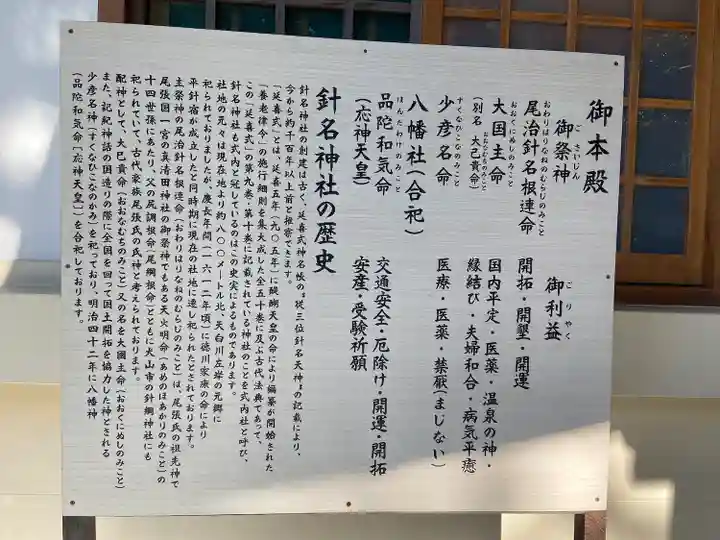 御本殿
御祭神
ごさいじん
御利益
ごりやく
尾治針名根連命
おわりはりなねのむらじのみこと
開拓・開墾・開運
大国主命
おおくにぬしのみこと
(別名 大己貴命)
おおなむちのみこと
国内平定・医薬・温泉の神・
縁結び・夫婦和合・病気平癒
少彦名命
すくなひこなのみこと
医療・医薬・禁厭(まじない)
八幡社(合祀)
品陀和気命
ほんだわけのみこと
(応神天皇)
交通安全・厄除け・開運・開拓
安産・受験祈願
針名神社の歴史
針名神社の創建は古く、延喜式神名帳の『従三位針名天神』の記載により、
今から約千百年以上前と推察できます。
『延喜式』とは、延喜五年(九〇五年)に醍醐天皇の命により編纂が開始された
『養老律令』の施行細則を集大成した全五十巻に及ぶ古代法典であって、
この『延喜式』の第九巻・第十巻に記載されている神社のことを式内社と呼び、
針名神社も式内と冠しているのはこの史実によるものであります。
社地の元々は現在地より約八〇〇メートル北、天白川左岸の元郷に
祀られておりましたが、慶長年間(一六一二年頃)に徳川家康の命により
平針宿が成立したと同時期に現在の社地に遷し祀られたとされております。
主祭神の尾治針名根連命(おわりはりなねのむらじのみこと)は、尾張氏の祖先神で
尾張国一宮の真清田神社の御祭神でもある天火明命(あめのほあかりのみこと)の
十四世孫にあたり、父の尻調根命(尾綱根命)とともに犬山市の針綱神社にも
祀られていて、古代豪族尾張氏の氏神と考えられております。
配神として、大己貴命(おおなむちのみこと)又の名を大國主命(おおくにぬしのみこと)
また、記紀神話の国造りの際に全国を回って国土開拓を協力した神とされる
少彦名神(すくなひこなのかみ)を祀っており、明治四十二年に八幡神
(品陀和気命「応神天皇」)を合祀しております。